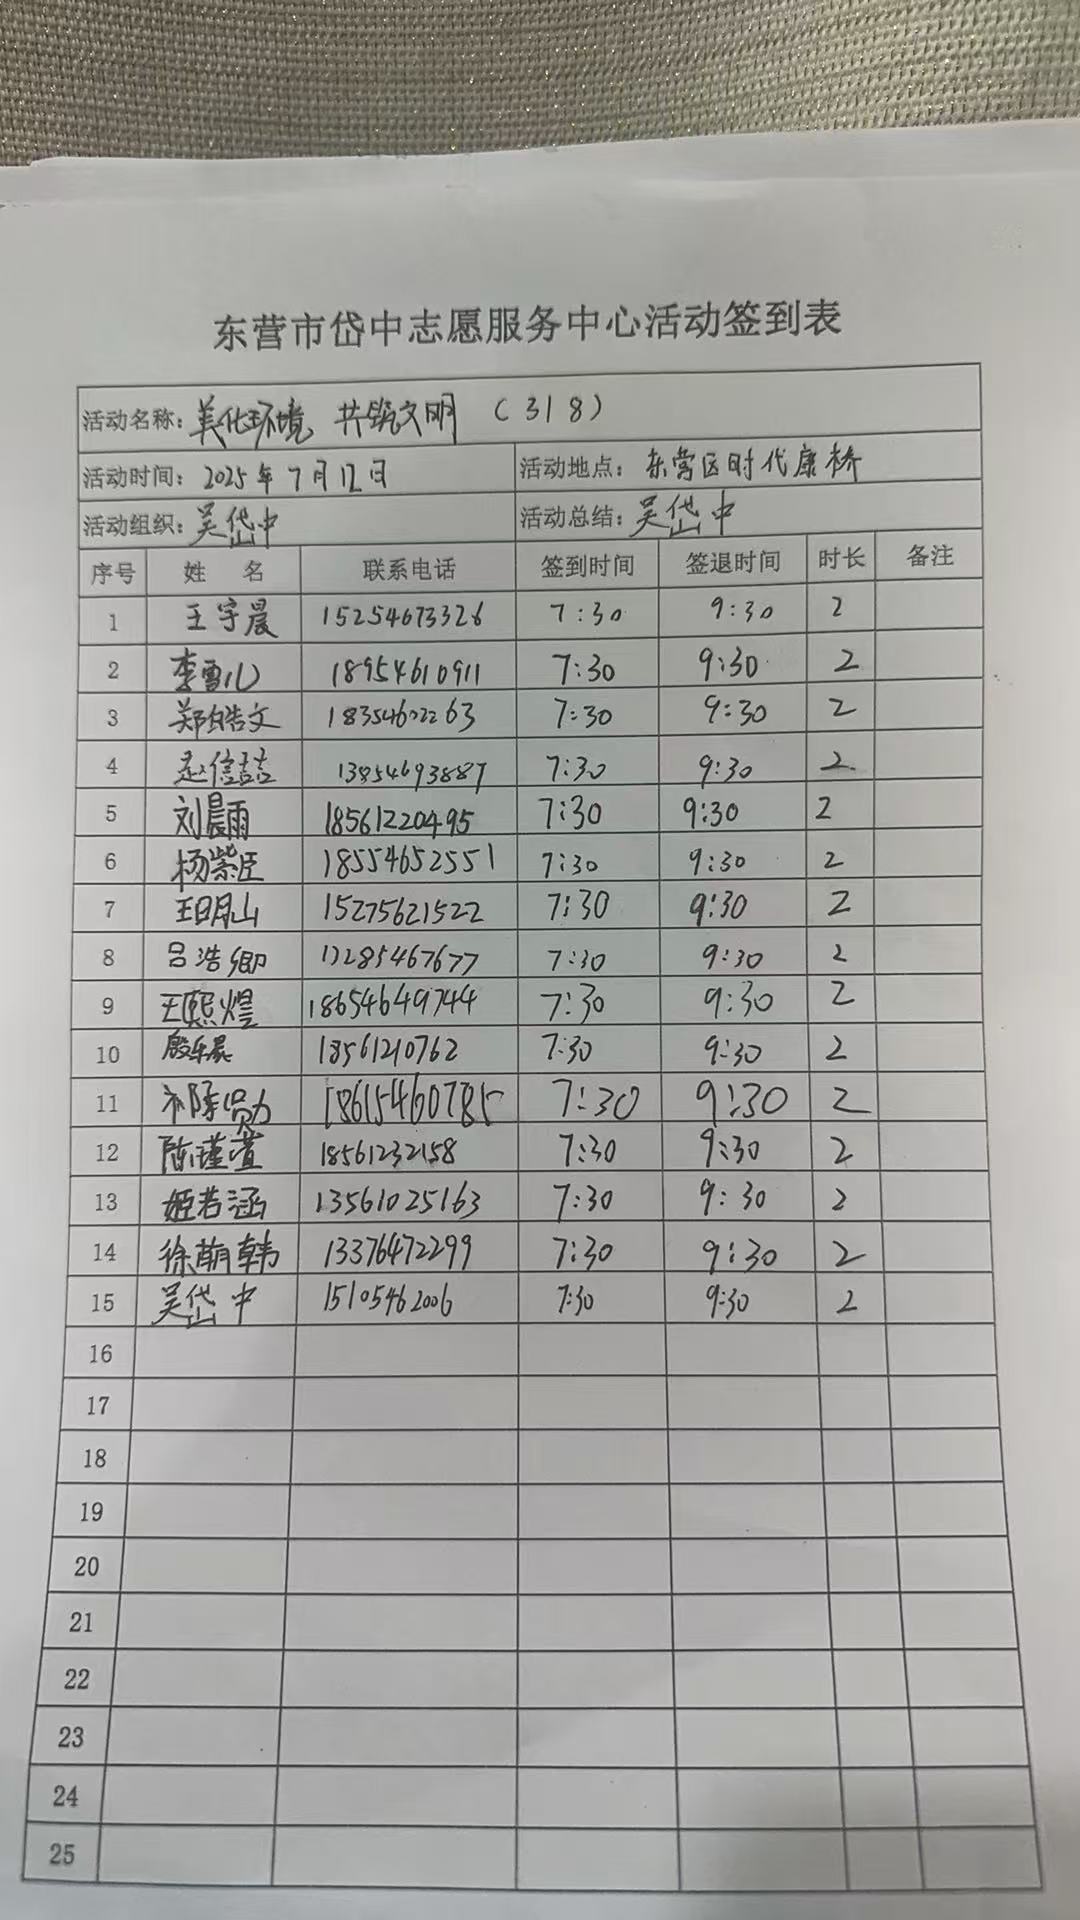 东营市岱中志愿服务中心活动签到表
活动名称: 美化环境 共筑文明 (318)
活动时间: 2025年7月12日 活动地点: 东营区时代康桥
活动组织: 吴岱中 活动总结: 吴岱中
序号 姓 名 联系电话 签到时间 签退时间 时长 备注
1 王宇晨 15254673326 7:30 9:30 2
2 李雪儿 18954610911 7:30 9:30 2
3 郑皓文 18354602263 7:30 9:30 2
4 赵信喆 13854693887 7:30 9:30 2
5 刘晨雨 18561220495 7:30 9:30 2
6 杨紫臣 18554652551 7:30 9:30 2
7 15275621522 7:30 9:30 2
8 吕浩卿 7:30 9:30 2
9 王熙煜 18654649744 7:30 9:30 2
10 殷乐晨 18561210762 7:30 9:30 2
11 18615460785 7:30 9:30 2
12 陈瑾萱 18561232158 7:30 9:30 2
13 姬若涵 13561025163 7:30 9:30 2
14 徐萌韩 13376472299 7:30 9:30 2
15 吴岱中 15105462006 7:30 9:30 2
16
17
18
19
20
21
22
23
24
25